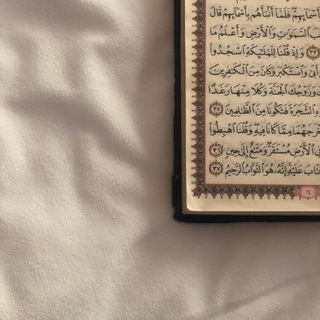 فَلَمَّآ أَنۢبَأَهُم بِأَسْمَآئِهِمْ قَالَ
ٱلسَّمَٰوَٰتِ وَٱلْأَرْضِ وَأَعْلَمُ مَا
٣٣ وَإِذْ قُلْنَا لِلْمَلَٰٓئِكَةِ ٱسْجُدُوا۟
أَبَىٰ وَٱسْتَكْبَرَ وَكَانَ مِنَ ٱلْكَٰفِرِينَ
وَزَوْجُكَ ٱلْجَنَّةَ وَكُلَا مِنْهَا رَغَدًا
ٱلشَّجَرَةَ فَتَكُونَا مِنَ ٱلظَّٰلِمِينَ ٣٥
مِمَّا كَانَا فِيهِ وَقُلْنَا ٱهْبِطُوا۟
ٱلْأَرْضِ مُسْتَقَرٌّ وَمَتَٰعٌ إِلَىٰ حِينٍ ٣٦
عَلَيْهِ إِنَّهُۥ هُوَ ٱلتَّوَّابُ ٱلرَّحِيمُ ٣٧
٦